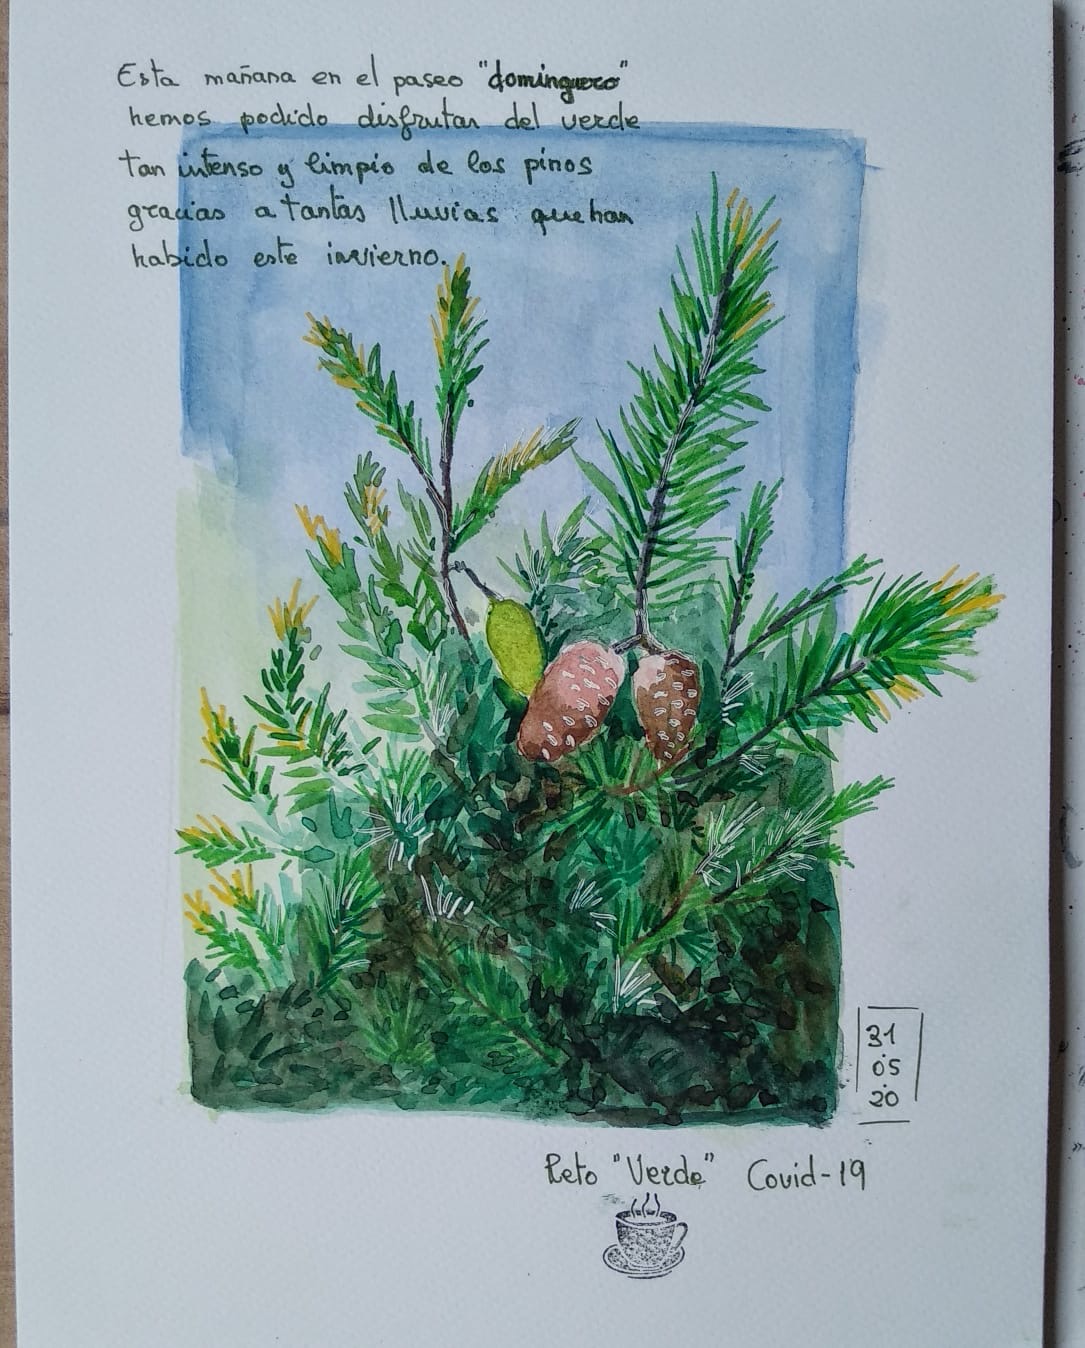 Esta mañana en el paseo "dominguero"
hemos podido disfrutar del verde
tan intenso y limpio de los pinos
gracias a tantas lluvias que han
habido este invierno.
31
05
20
Reto "Verde" Covid-19